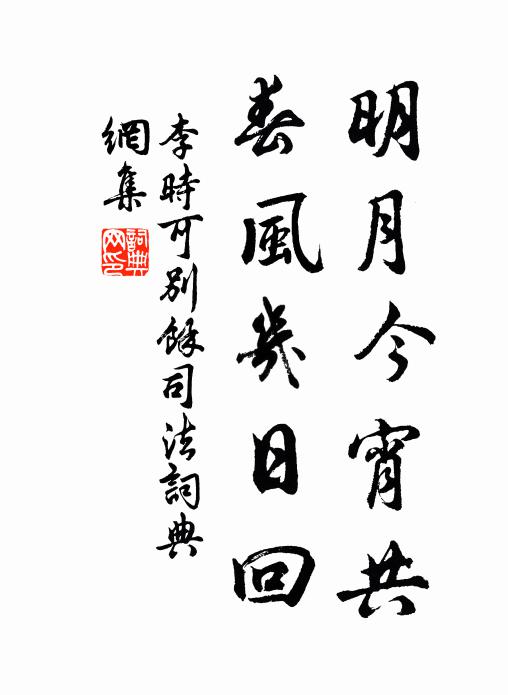 明月今宵共
春風幾日回
李時可別餘司法詞典
網集
詞典
网印